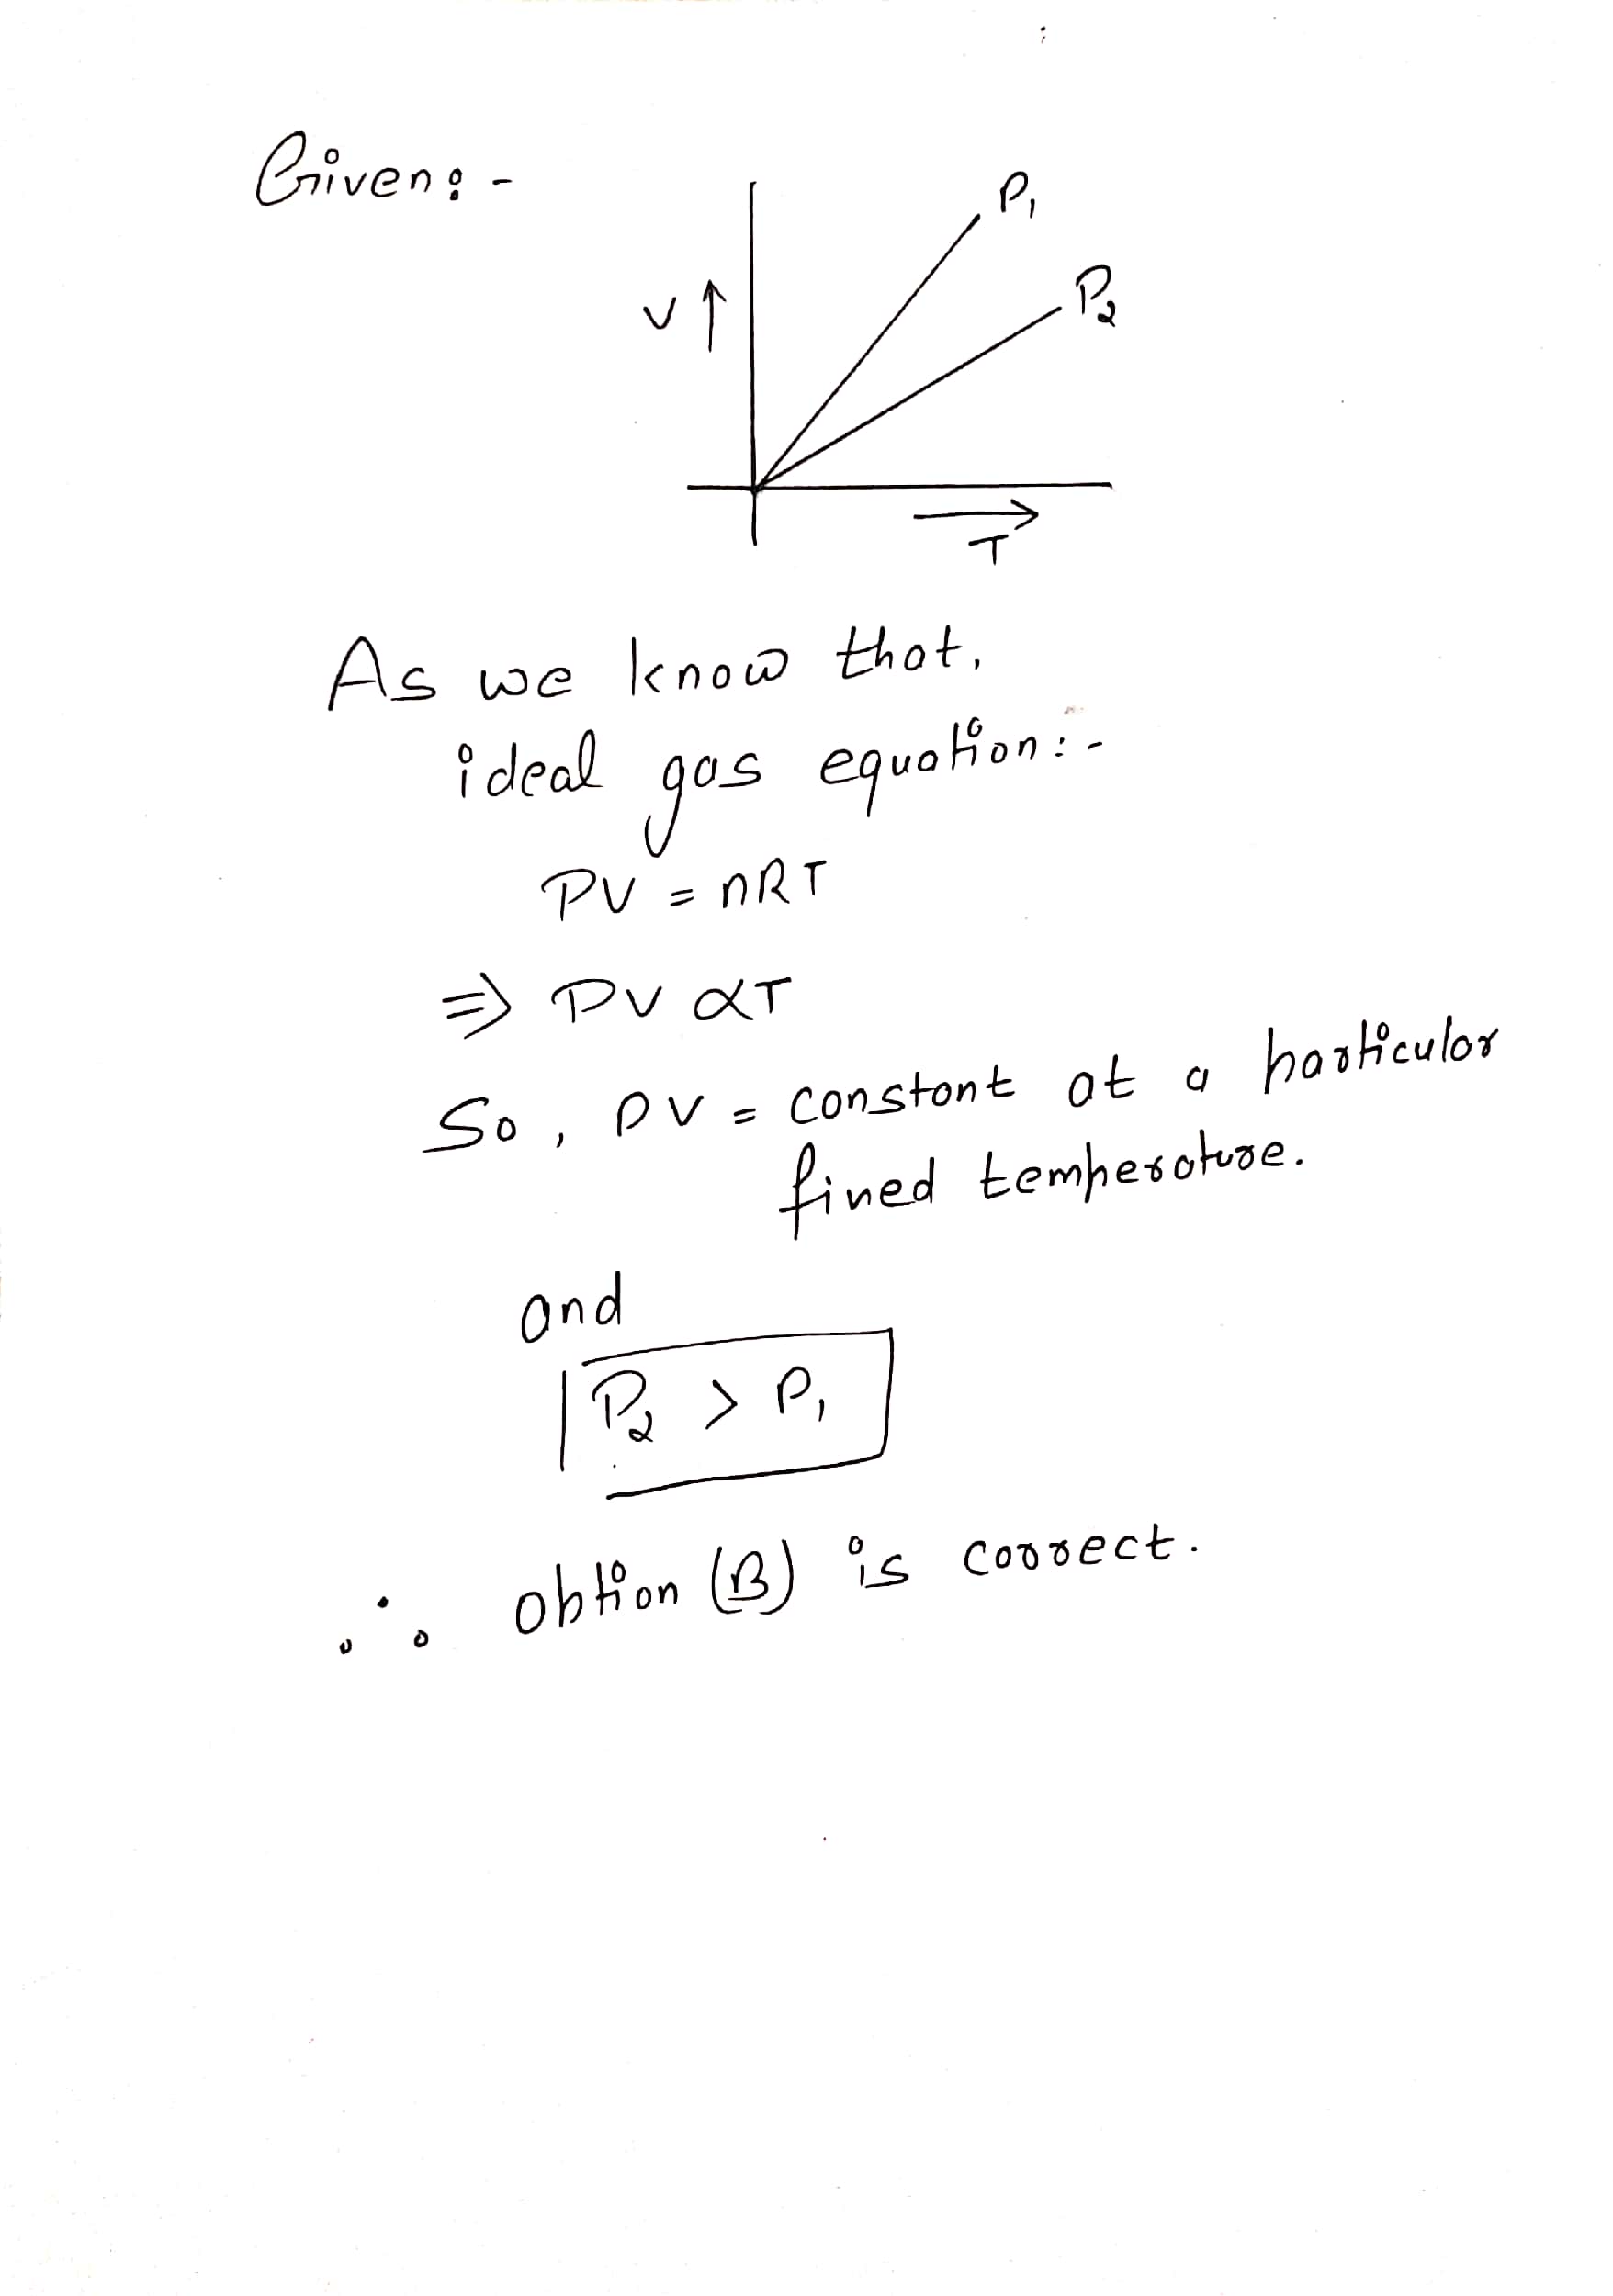 Given:-
P₁
P₂
V↑
T
As we know that,
ideal gas equation:-
PV = nRT
⇒ PV αT
So, PV = constant at a particular
fined temperature.
and
P₂ > P₁
∴ option (B) is correct.